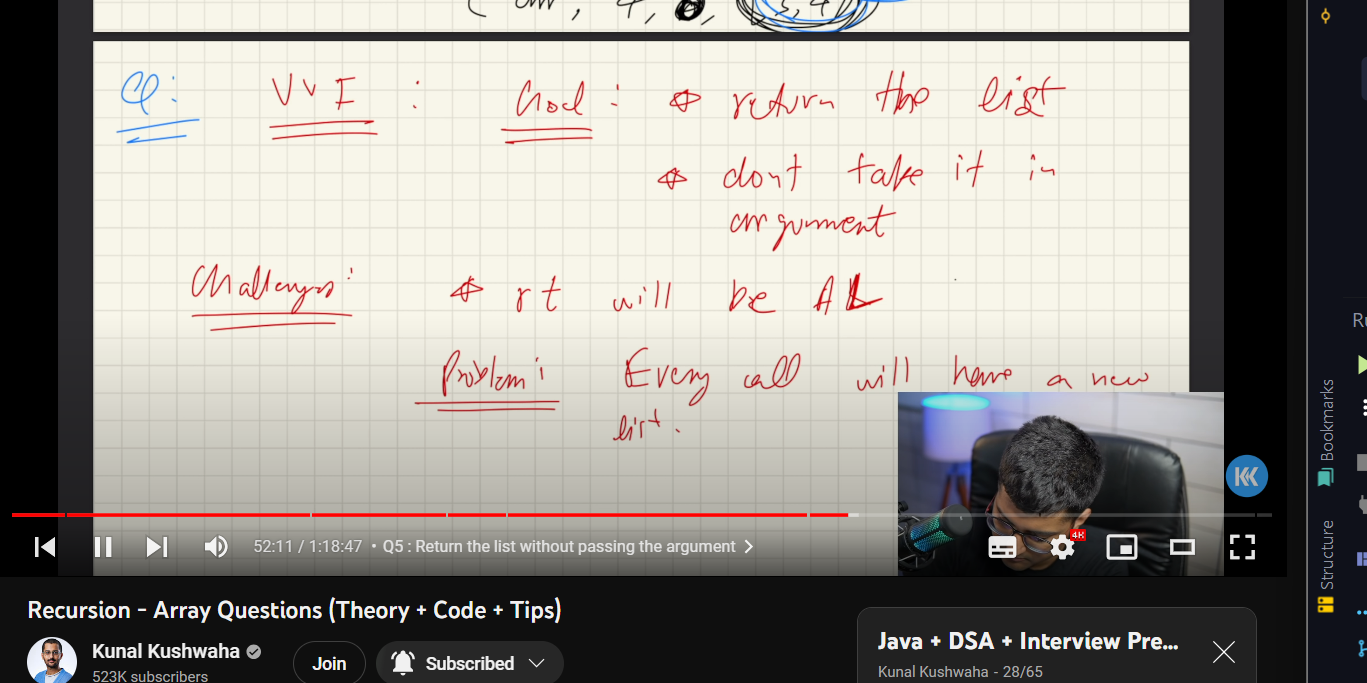 ( arr, 4, 0, [3,4]
Q: VVI : God : * return the list
* dont take it in
argument
Challenges: * rt will be AL
Problem: Every call will have a new
list.
KK
4K
52:11 / 1:18:47 • Q5 : Return the list without passing the argument
Recursion - Array Questions (Theory + Code + Tips)
Kunal Kushwaha
523K subscribers
Join
Subscribed
Java + DSA + Interview Pre...
Kunal Kushwaha - 28/65
Ru
Bookmarks
Structure